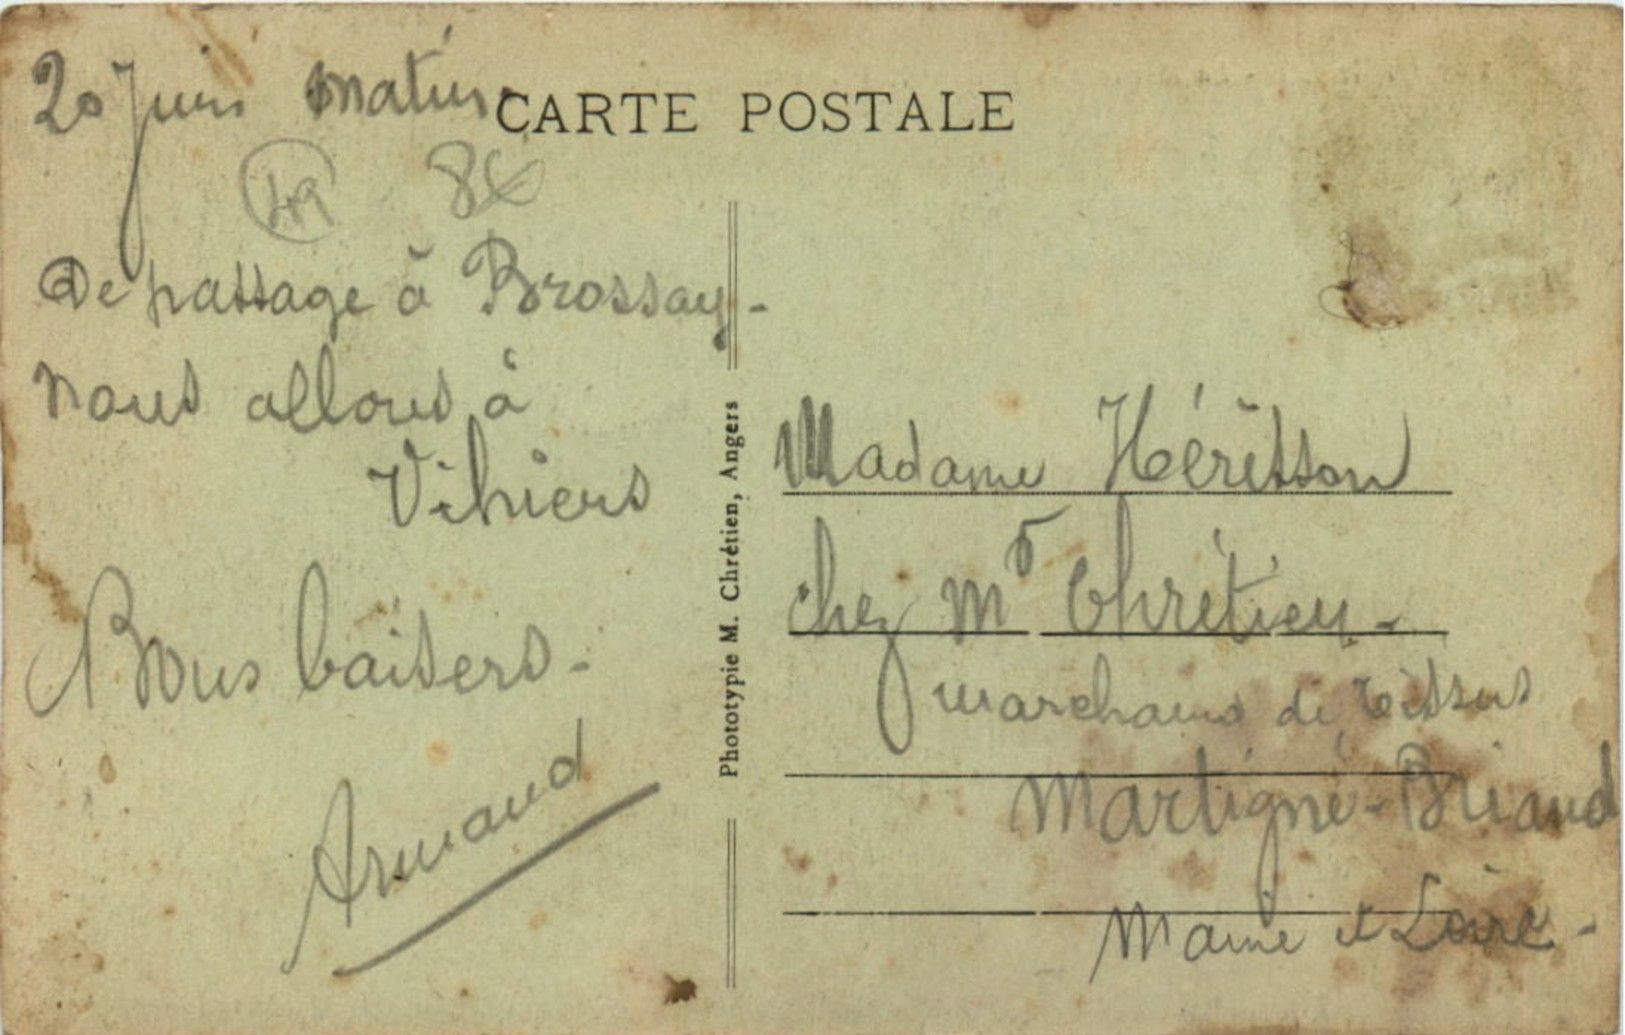 20 Juin matin
CARTE POSTALE
49
8€
De passage à Brossay-
nous allons à
Vihiers
Bons baisers-
Armand
Phototypie M. Chrétien, Angers
Madame Hérisson
chez Mr Chrétien-
marchand de tissus
Martigné-Briand
Maine et Loire-